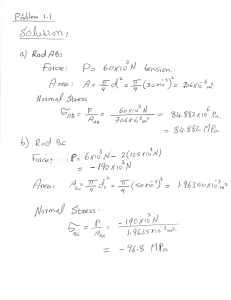 Problem 1.1
Solution:
a) Rod AB:
Force: P = 60x10³ N tension.
Area: A = π/4 d² = π/4 (30x10⁻³)² = 706x10⁻⁶ m²
Normal Stress
σ_AB = P/A_AB = 60x10³ N / 706x10⁻⁶ m² = 84.882x10⁶ Pa.
= 84.882 MPa.
b) Rod BC
Force: P = 60x10³ N - 2(125x10³ N)
= -190x10³ N
Area: A_BC = π/4 d² = π/4 (50x10⁻³)² = 1.9635x10⁻³ m²
Normal Stress.
σ_BC = P/A_BC = -190x10³ N / 1.9635x10⁻³ m²
= -96.8 MPa